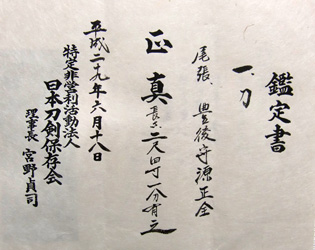 鑑定書
一、刀
尾張 豊後守源正全
正真 長サ二尺四寸一分有之
平成二十九年六月十八日
特定非営利活動法人
日本刀剣保存会
理事長 宮野貞司